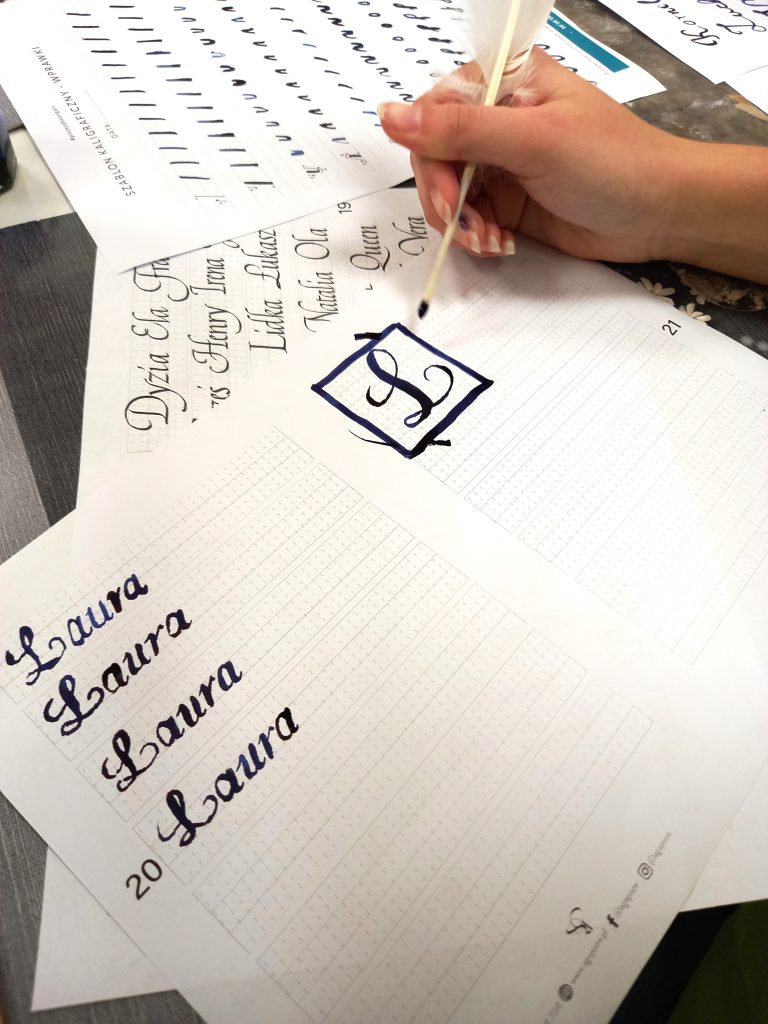 SZABLON KALIGRAFICZNY - WPRAWKI
DATA:
Kornel
19
Dyzia Ela
Henry Irena
Lidka Łukasz
Natalia Ola
Queen
Vera
21
L
Laura
Laura
Laura
Laura
20